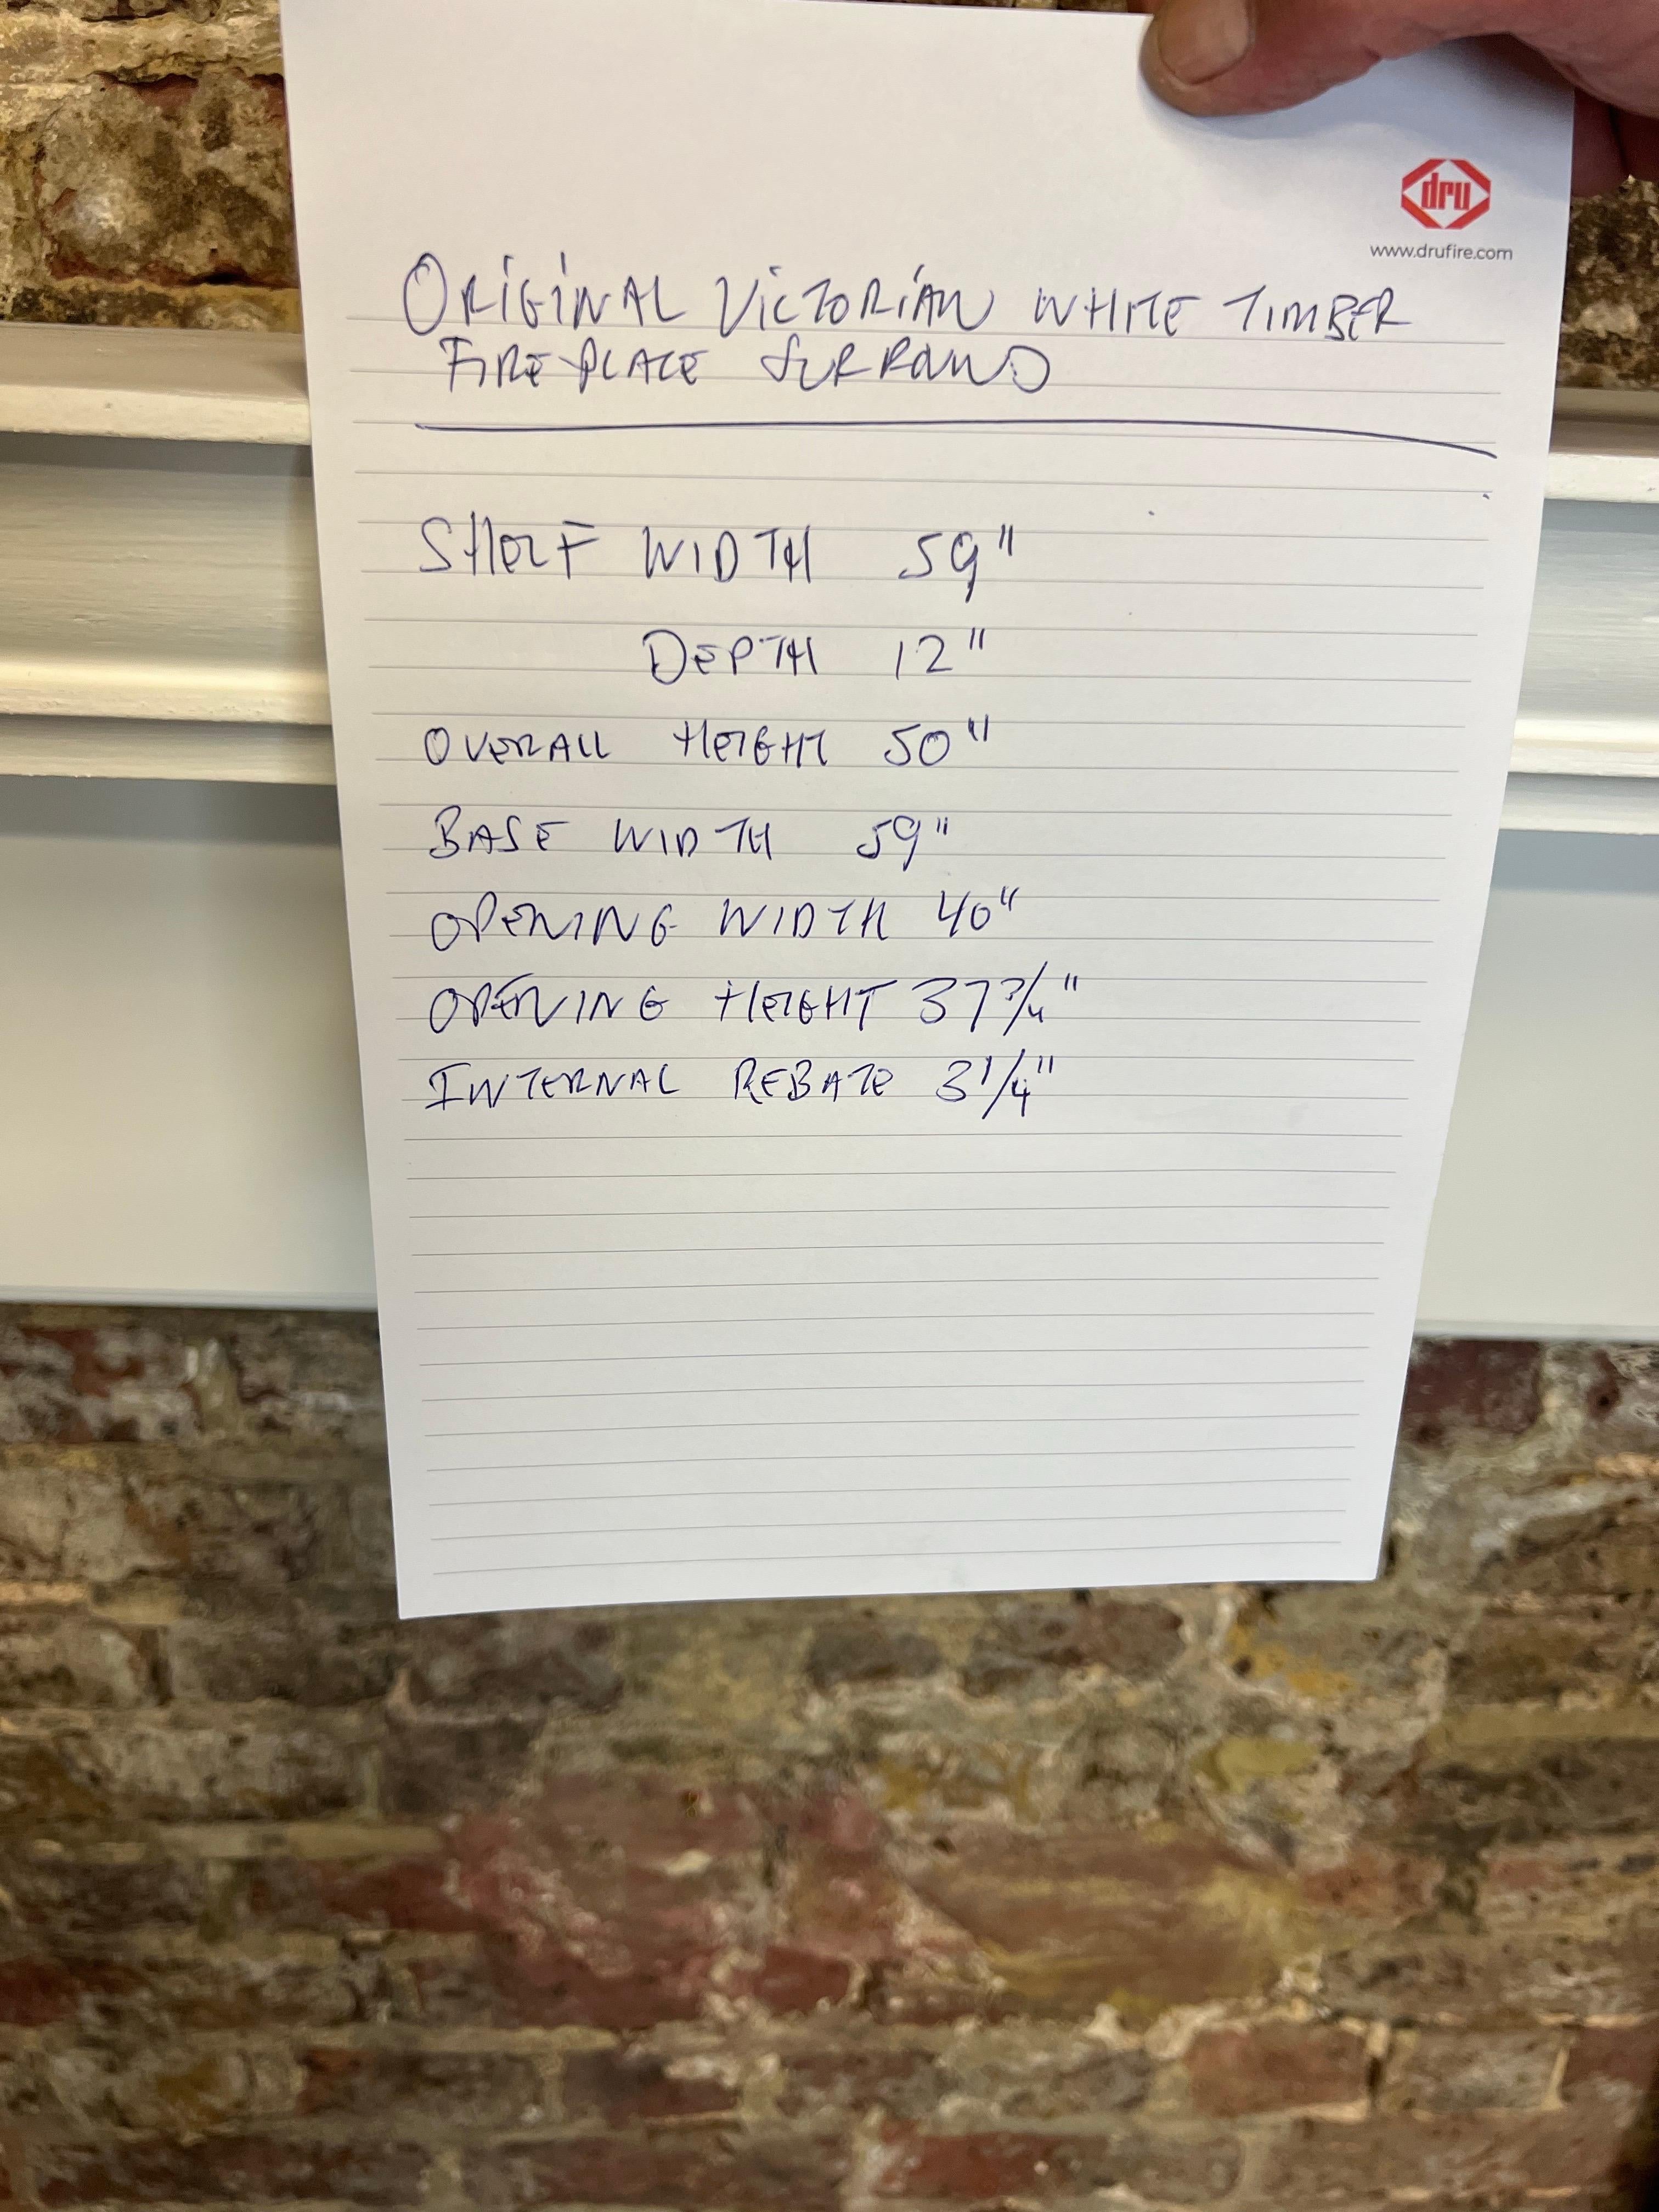 dru
www.drufire.com
ORIGINAL VICTORIAN WHITE TIMBER
FIREPLACE SURROUND
SHELF WIDTH 59"
DEPTH 12"
OVERALL HEIGHT 50"
BASE WIDTH 59"
OPENING WIDTH 40"
OPENING HEIGHT 37 3/4"
INTERNAL REBATE 3 1/4"